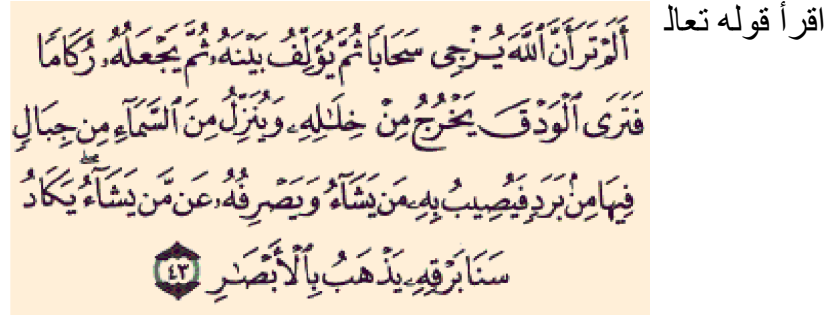 اقرأ قوله تعال
أَلَمْ تَرَ أَنَّ ٱللَّهَ يُزْجِى سَحَابًا ثُمَّ يُؤَلِّفُ بَيْنَهُۥ ثُمَّ يَجْعَلُهُۥ رُكَامًا
فَتَرَى ٱلْوَدْقَ يَخْرُجُ مِنْ خِلَـٰلِهِۦ وَيُنَزِّلُ مِنَ ٱلسَّمَآءِ مِن جِبَالٍ
فِيهَا مِنۢ بَرَدٍ فَيُصِيبُ بِهِۦ مَن يَشَآءُ وَيَصْرِفُهُۥ عَن مَّن يَشَآءُ ۖ يَكَادُ
سَنَا بَرْقِهِۦ يَذْهَبُ بِٱلْأَبْصَـٰرِ ٤٣